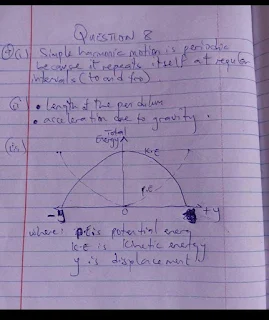 QUESTION 8
(i) Simple harmonic motion is periodic
because it repeats itself at regular
intervals (to and fro)
(ii) • length of the pendulum
• acceleration due to gravity.
(iii)
Total
Energy
K.E
P.E
-y
0
+y
where: P.E is potential energy
K.E is kinetic energy
y is displacement